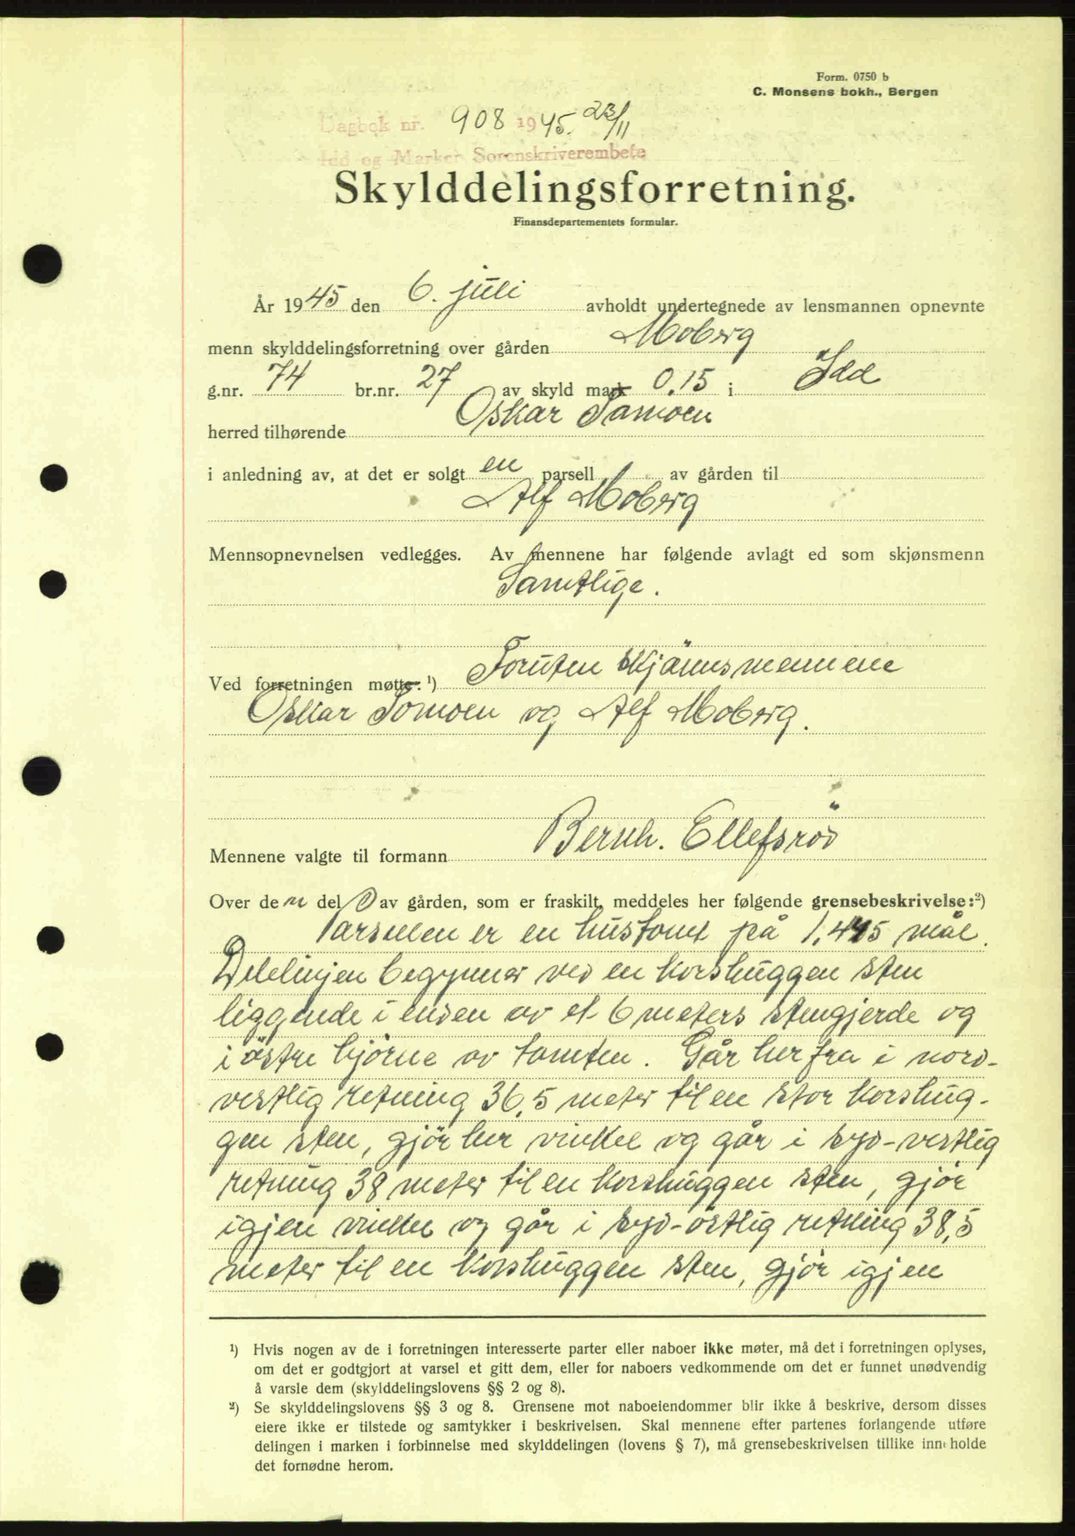 Form. 0750 b
C. Monsens bokh., Bergen
Dagbok nr. 908 1945. 23/11
Idd og Marker Sorenskriverembete
Skylddelingsforretning.
Finansdepartementets formular.
År 1945 den 6. juli avholdt undertegnede av lensmannen opnevnte
menn skylddelingsforretning over gården Moberg
g.nr. 74 br.nr. 27 av skyld mark 0.15 i Idd
herred tilhørende Oskar Tomoen
i anledning av, at det er solgt en parsell av gården til
Alf Moberg
Mennsopnevnelsen vedlegges. Av mennene har følgende avlagt ed som skjønsmenn
Samtlige.
Ved forretningen møtte: ¹) Foruten skjønnsmennene
Oskar Tomoen og Alf Moberg.
Mennene valgte til formann Bernh. Ellefsrød
Over den del av gården, som er fraskilt, meddeles her følgende grensebeskrivelse:²)
Parsellen er en hustomt på 1,445 mål.
Delelinjen begynner ved en korshuggen sten
liggende i enden av et 6 meters stengjerde og
i östre hjörne av tomten. Går herfra i nord-
vestlig retning 36,5 meter til en stor korshug-
gen sten, gjör her vinkel og går i syd-vestlig
retning 38 meter til en korshuggen sten, gjör
igjen vinkel og går i syd-östlig retning 38,5
meter til en korshuggen sten, gjör igjen
¹) Hvis nogen av de i forretningen interesserte parter eller naboer ikke møter, må det i forretningen oplyses,
om det er godtgjort at varsel et gitt dem, eller for naboers vedkommende om det er funnet unødvendig
å varsle dem (skylddelingslovens §§ 2 og 8).
²) Se skylddelingslovens §§ 3 og 8. Grensene mot naboeiendommer blir ikke å beskrive, dersom disses
eiere ikke er tilstede og samtykker i beskrivelsen. Skal mennene efter partenes forlangende utføre
delingen i marken i forbinnelse med skylddelingen (lovens § 7), må grensebeskrivelsen tillike innholde
det fornødne herom.